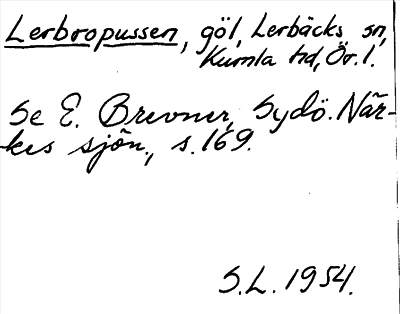 Lerbropussen, göl, Lerbäcks sn,
Kumla hd, Ör. l.
Se E. Brevner, Sydö. När-
kes sjön., s. 169.
S.L. 1954.